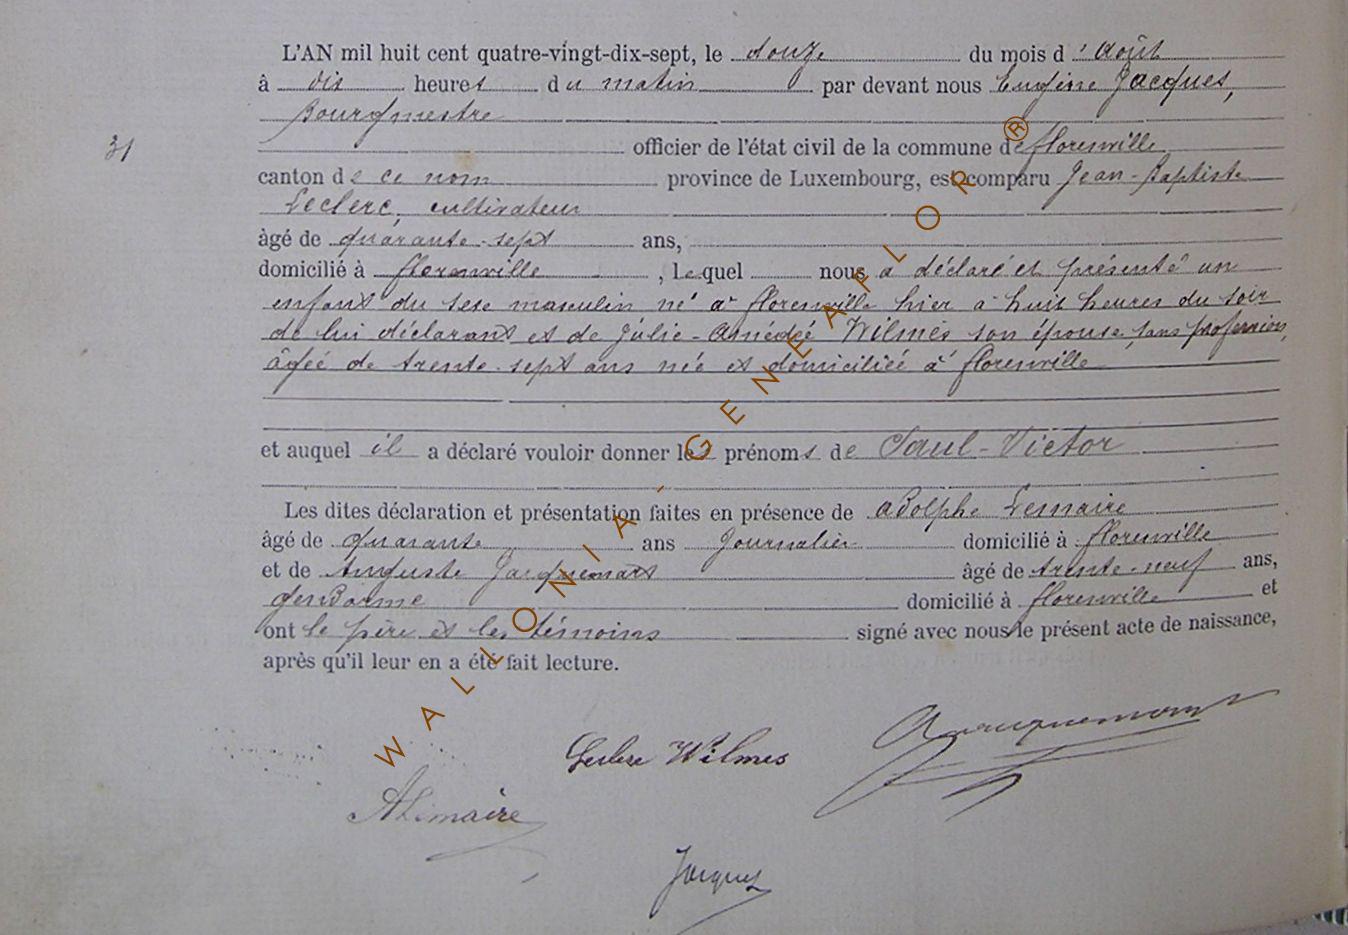 L'AN mil huit cent quatre-vingt-dix-sept, le douze du mois d'août
à dix heures du matin par devant nous Eugène Jacques,
Bourgmestre
31
officier de l'état civil de la commune de florenville
canton de ce nom province de Luxembourg, est comparu Jean-Baptiste
Leclerc, cultivateur
âgé de quarante-sept ans,
domicilié à florenville, Lequel nous a déclaré et présenté un
enfant du sexe masculin né à florenville hier à huit heures du soir
de lui déclarant et de Julie-Amédée Wilmes son épouse, sans profession,
âgée de trente-sept ans née et domiciliée à florenville
et auquel il a déclaré vouloir donner les prénoms de Paul-Victor
Les dites déclaration et présentation faites en présence de Adolphe Lemaire
âgé de quarante ans Journalier domicilié à florenville
et de Auguste Jacquemart âgé de trente-neuf ans,
gendarme domicilié à florenville et
ont le père et les témoins signé avec nous le présent acte de naissance,
après qu'il leur en a été fait lecture.
Leclerc Wilmes
ALemaire
Jacques
WALLONIA - GENEAFLOR ®